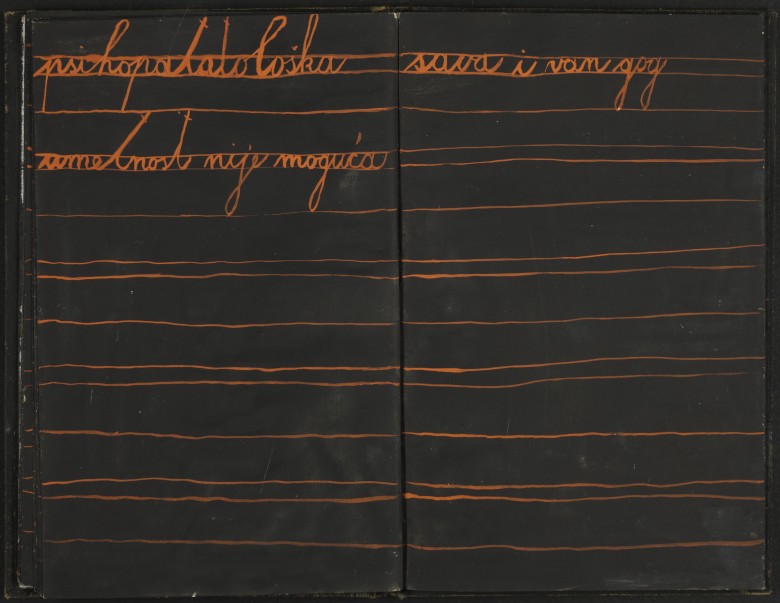 psihopatatološka
umetnost nije moguća
sava i van gog